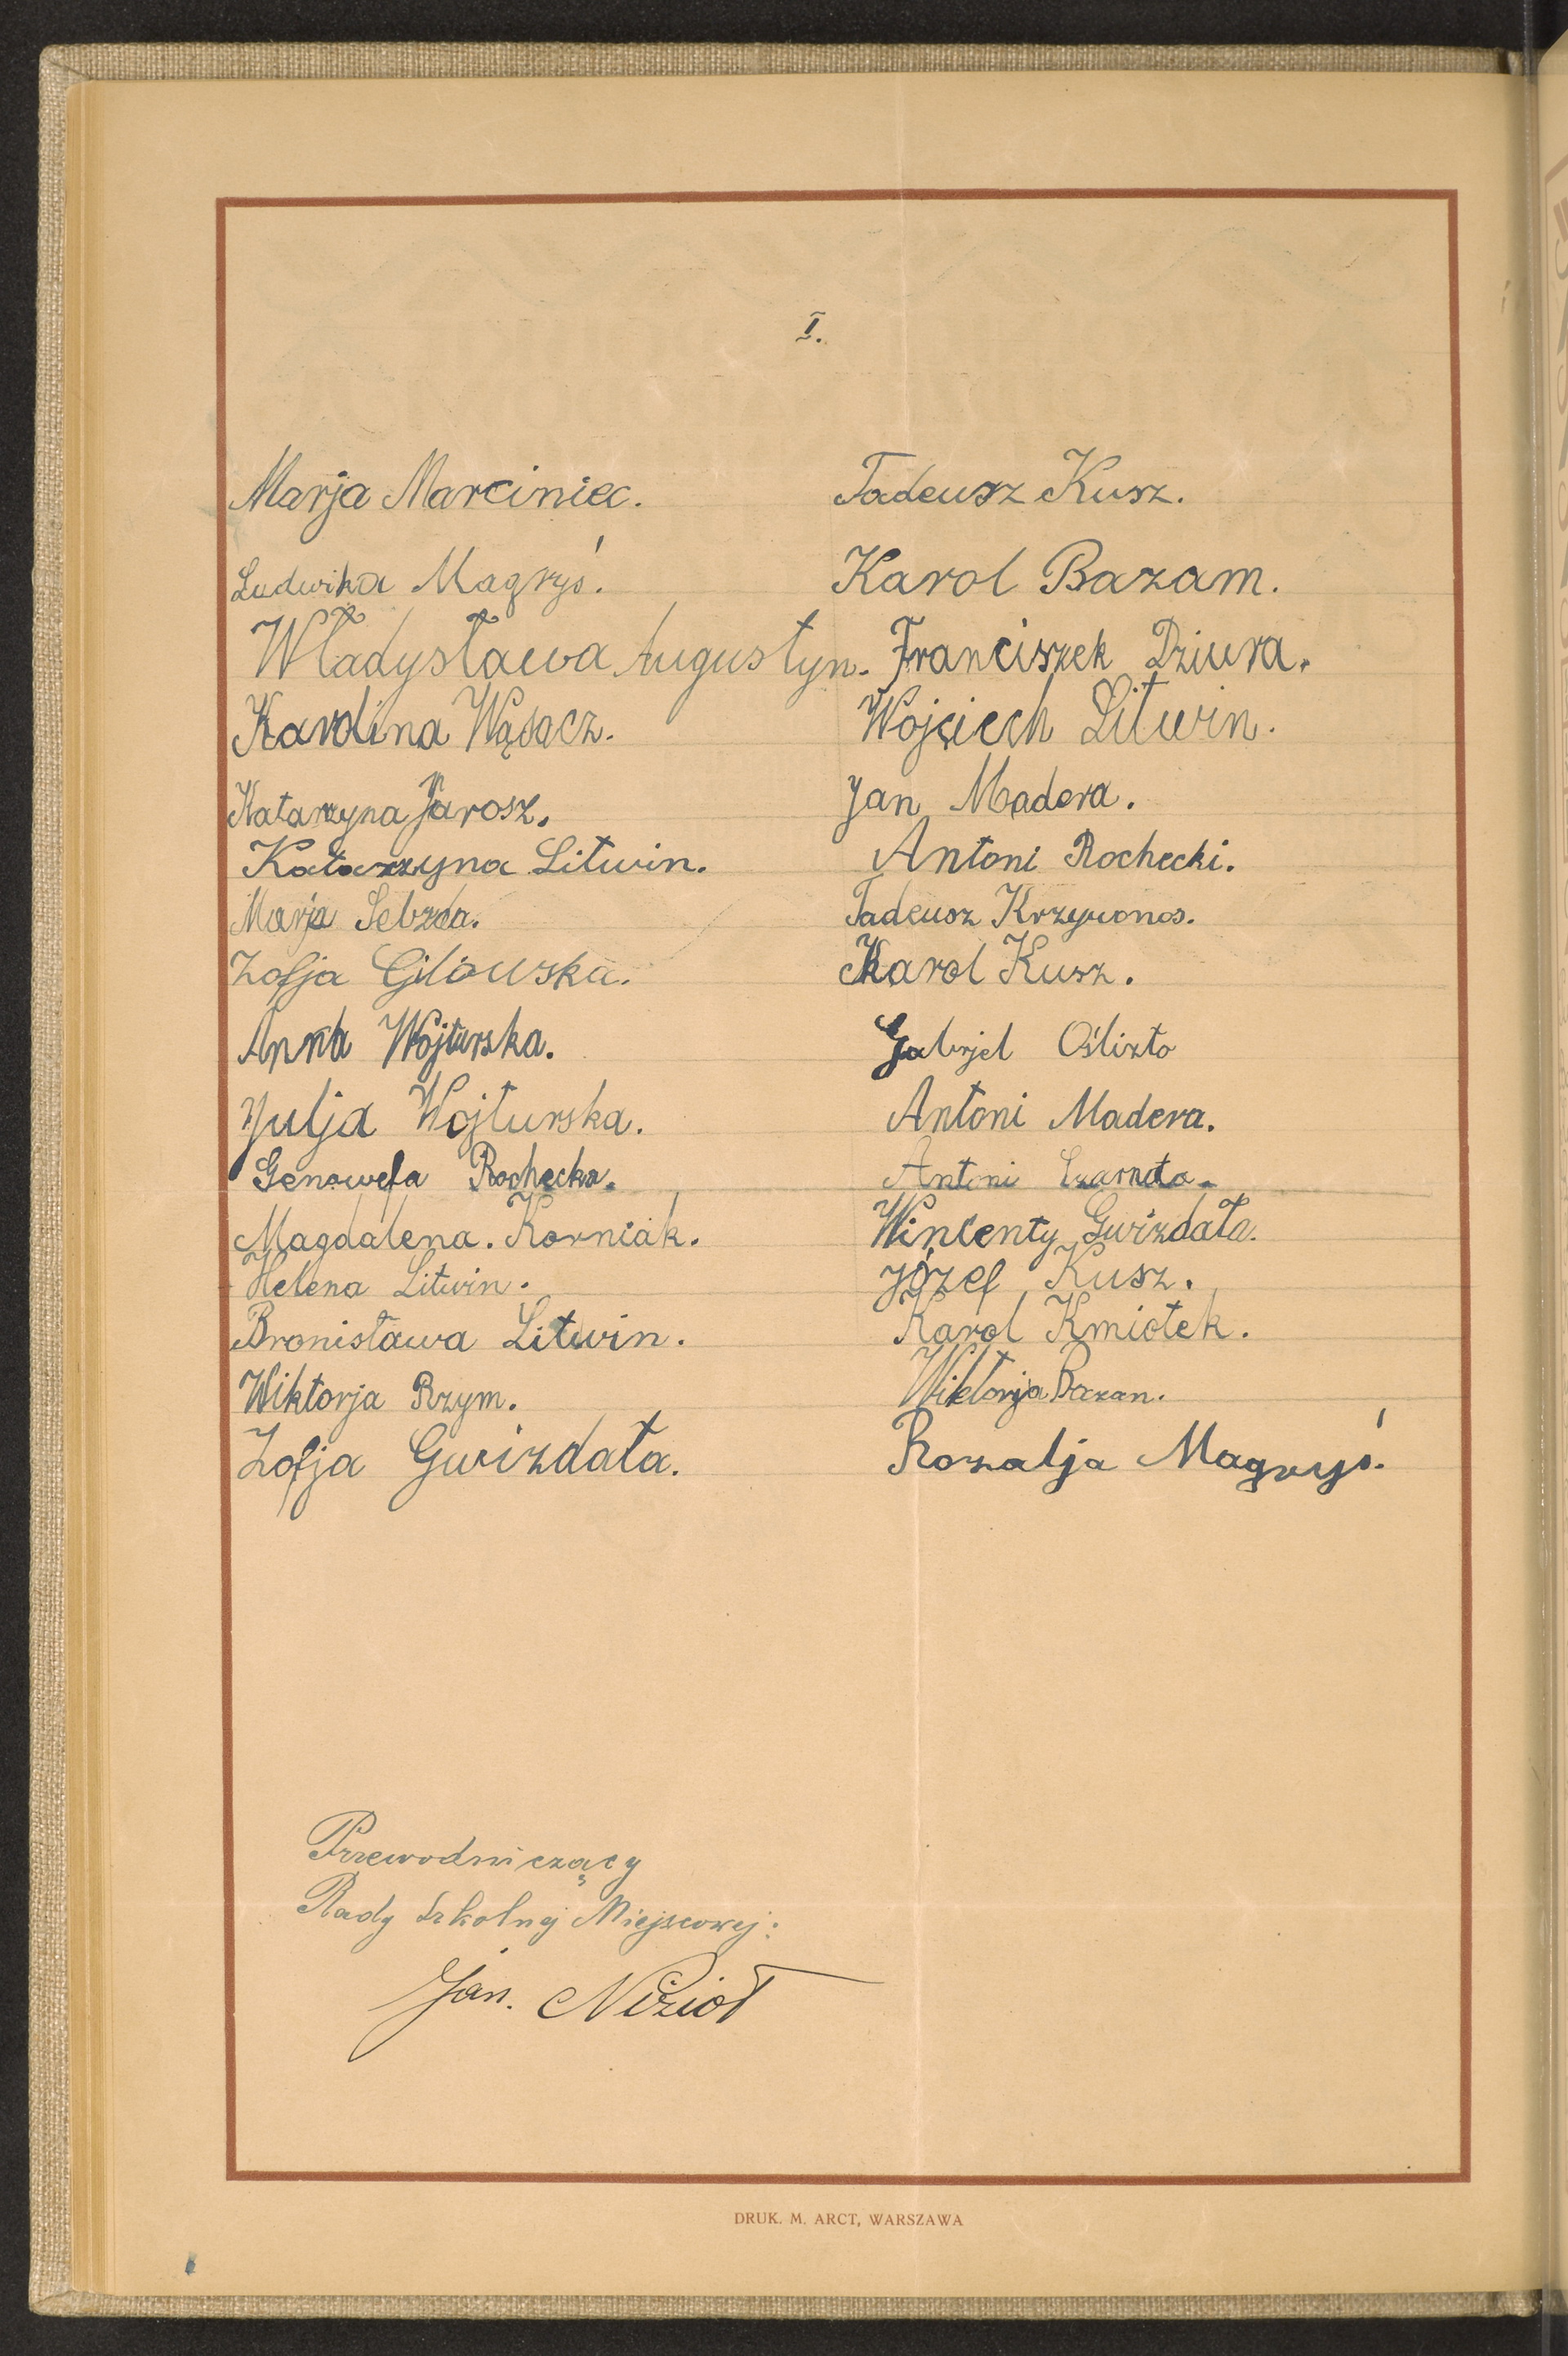 I.
Marja Marciniec.
Ludwika Magryś.
Władysława Augustyn.
Karolina Wąsacz.
Katarzyna Jarosz.
Katarzyna Litwin.
Marja Sebzda.
Zofja Gilowska.
Anna Wojturska.
Julja Wojturska.
Genowefa Rochecka.
Magdalena. Korniak.
Helena Litwin.
Bronisława Litwin.
Wiktorja Rzym.
Zofja Gwizdała.
Tadeusz Kusz.
Karol Bazam.
Franciszek Dziura.
Wojciech Litwin.
Jan Madera.
Antoni Rochecki.
Tadeusz Krzywonos.
Karol Kusz.
Gabrjel Oślizło
Antoni Madera.
Antoni Czarnota.
Wincenty Gwizdała.
Józef Kusz.
Karol Kmiotek.
Wiktorja Bazan.
Rozalja Magryś.
Przewodniczący
Rady Szkolnej Miejscowej:
Jan. Nizioł
DRUK. M. ARCT, WARSZAWA